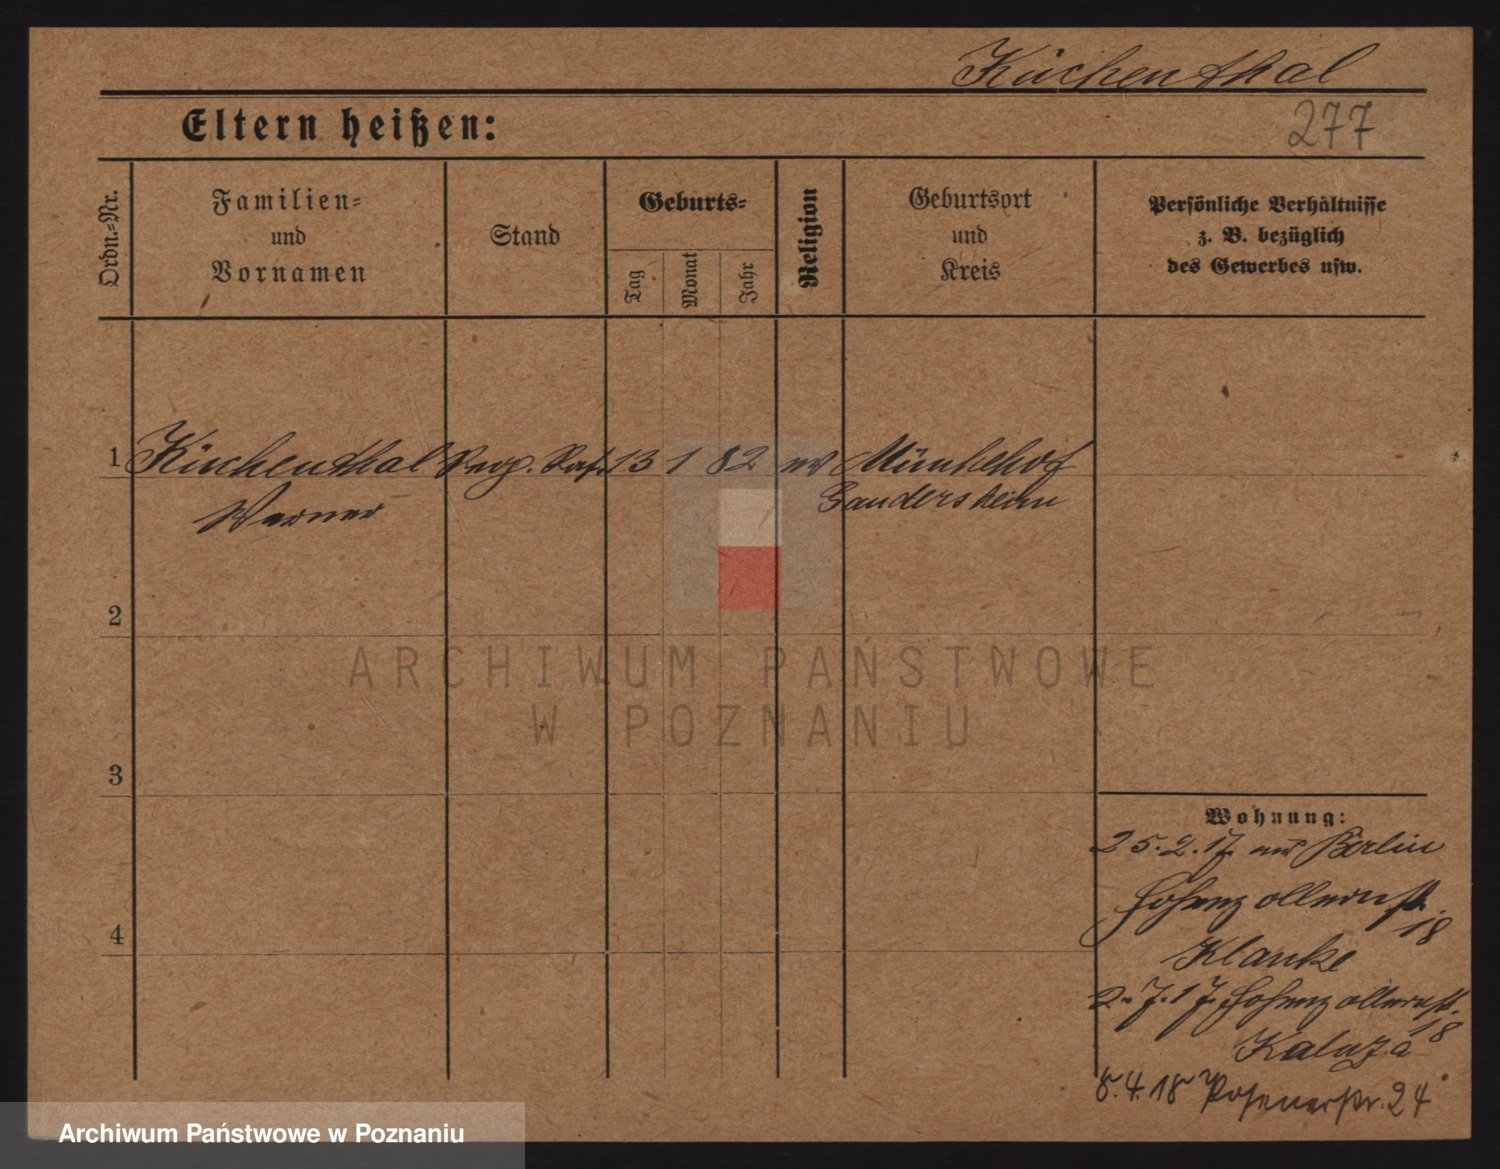 Küchenthal
Eltern heißen:
277
Ordn.-Nr.
Familien-
und
Vornamen
Stand
Geburts-
Tag
Monat
Jahr
Religion
Geburtsort
und
Kreis
Persönliche Verhältnisse
z. B. bezüglich
des Gewerbes usw.
1 Küchenthal 13 1 82 ev Münchehof
Werner Gandersheim
2
3
4
Wohnung:
25.2.17 aus Berlin
Hohenzollernstr.
18
Klauke
2.7.17. Hohenzollernstr.
18
Kaluza
8.4.18 Posenerstr. 24
ARCHIWUM PAŃSTWOWE
W POZNANIU
Archiwum Państwowe w Poznaniu